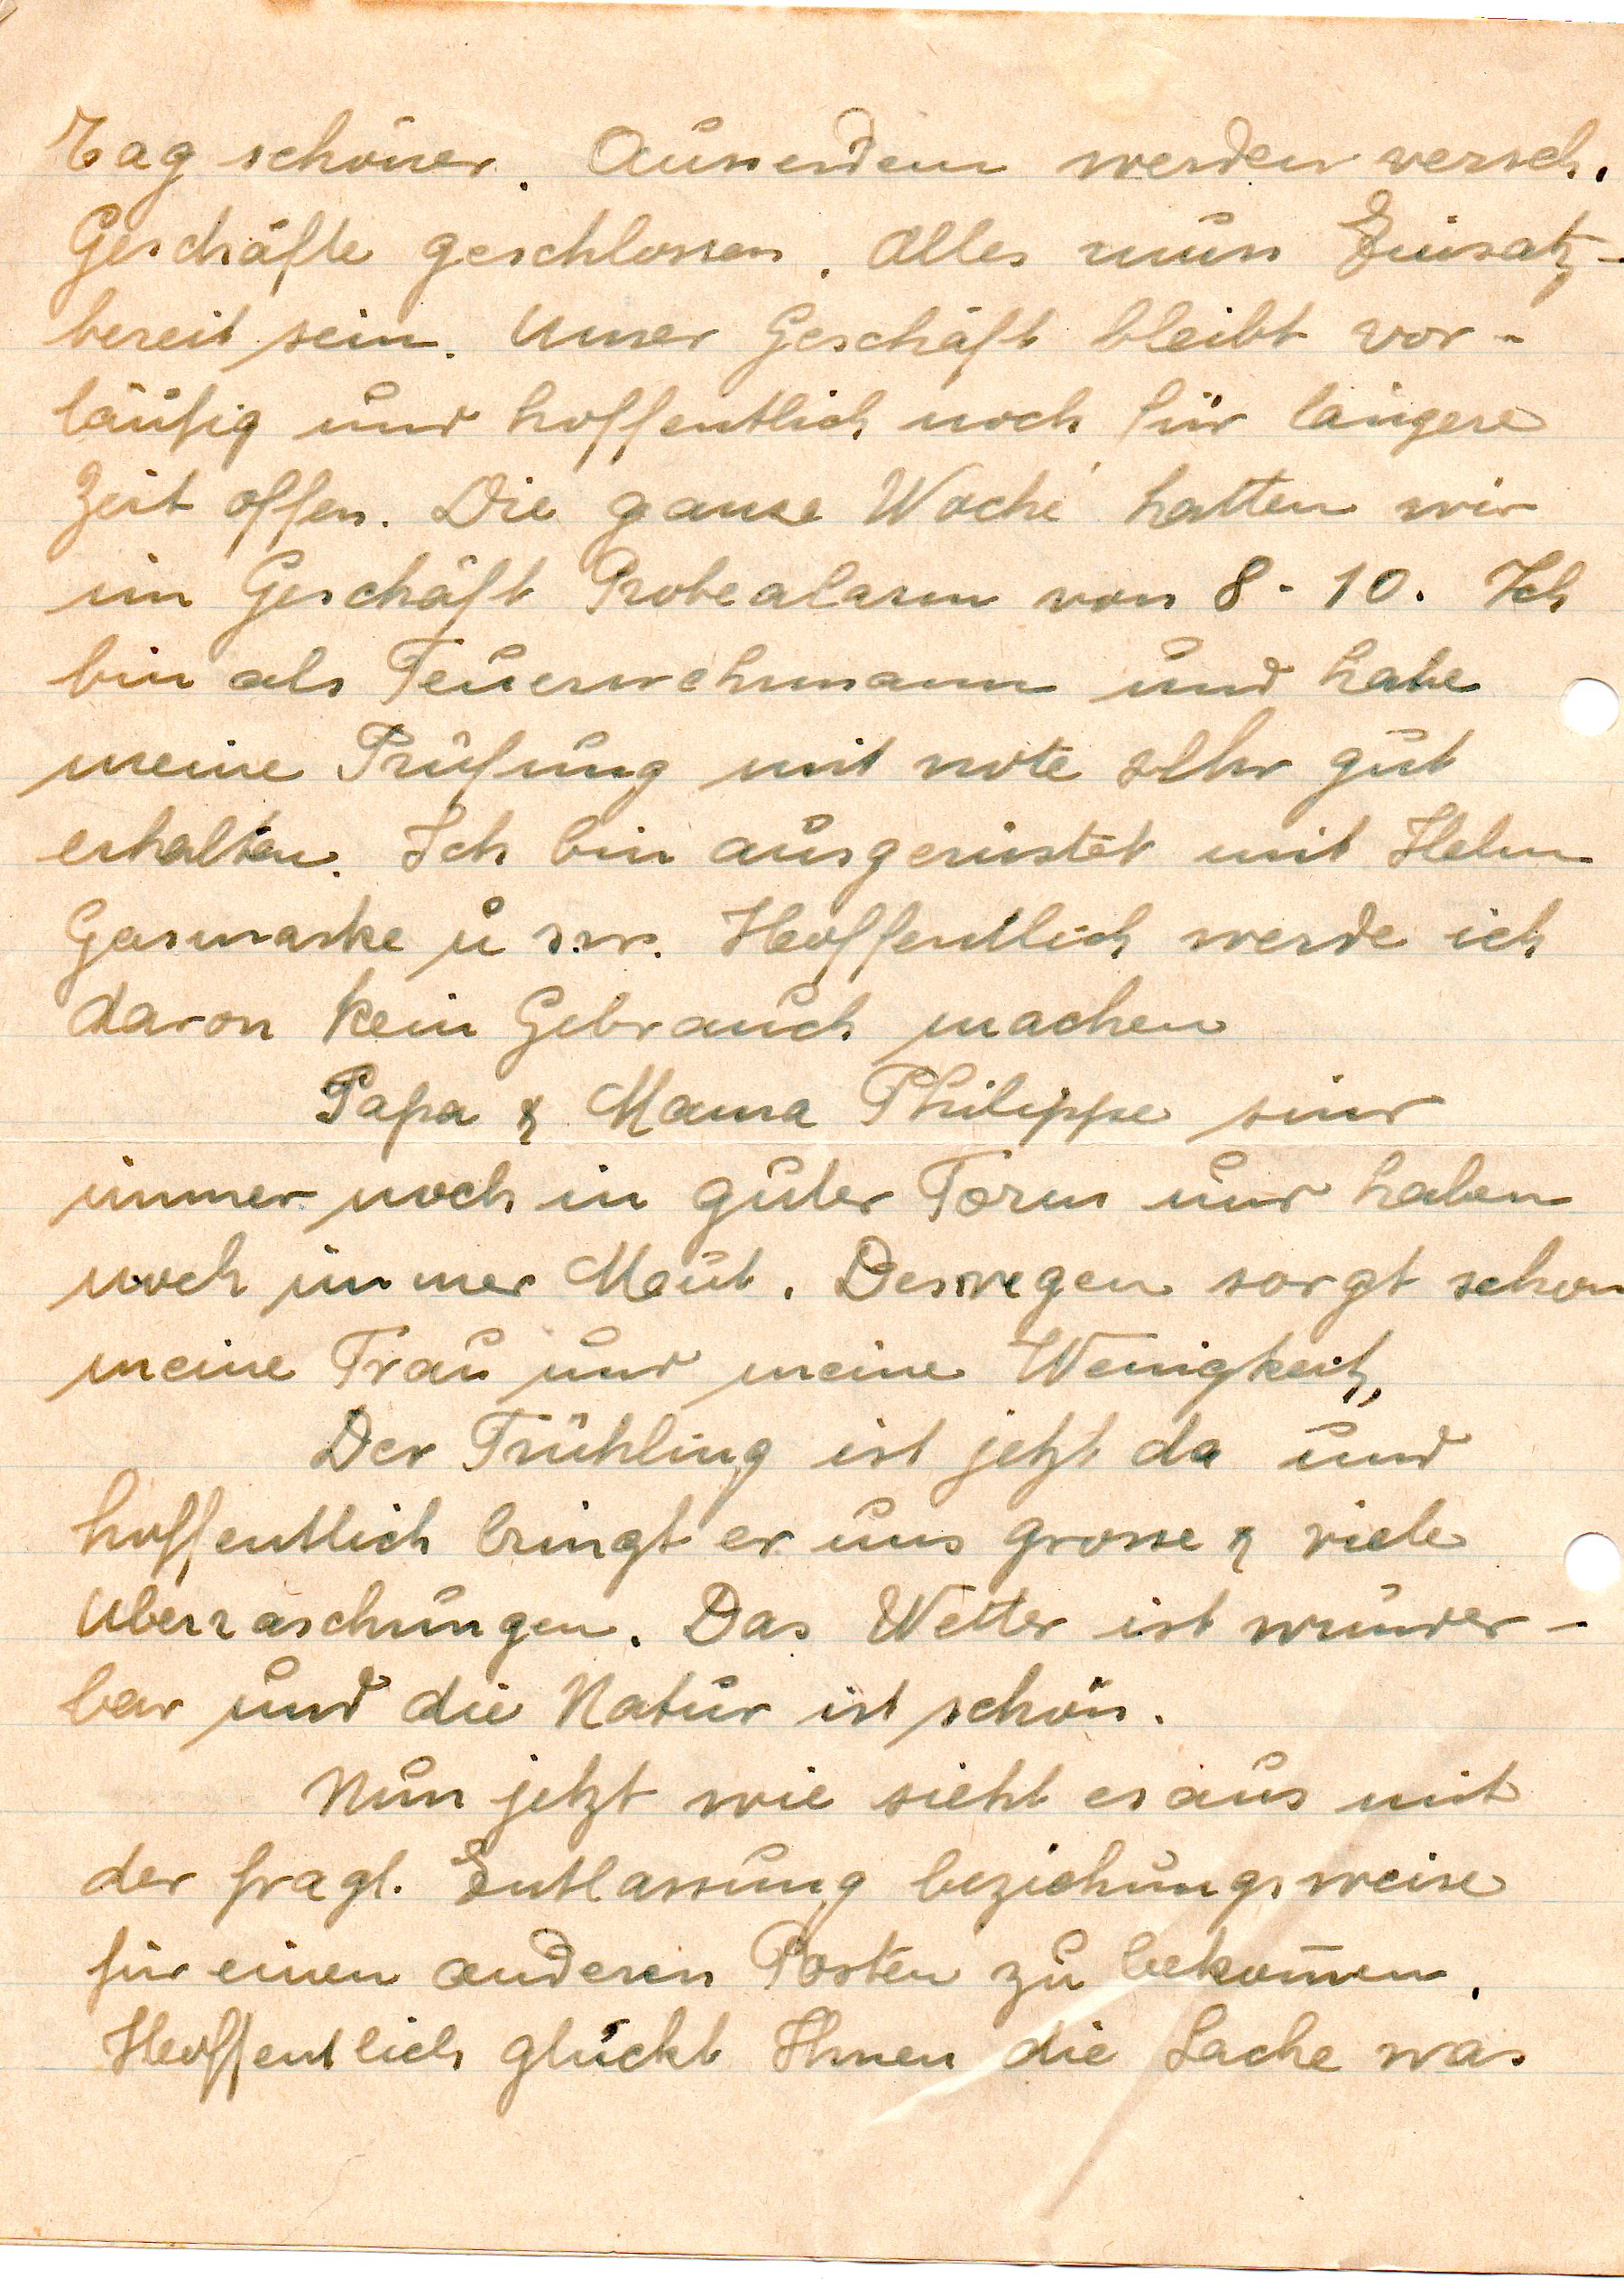 Tag schöner. Ausserdem werden versch.
Geschäfte geschlossen. Alles muss Einsatz-
bereit sein. Unser Geschäft bleibt vor-
läufig und hoffentlich noch für längere
Zeit offen. Die ganze Woche hatten wir
im Geschäft Probealarm von 8-10. Ich
bin als Feuerwehrmann und habe
meine Prüfung mit note sehr gut
erhalten. Ich bin ausgerüstet mit Helm
Gasmaske u s.w. Hoffentlich werde ich
davon kein Gebrauch machen
Papa & Mama Philippe sind
immer noch in guter Form und haben
noch immer Mut. Deswegen sorgt schon
meine Frau und meine Wenigkeit,
Der Frühling ist jetzt da und
hoffentlich bringt er uns grosse & viele
Uberraschungen. Das Wetter ist wunder-
bar und die Natur ist schön.
Nun jetzt wie sieht es aus mit
der fragl. Entlassung beziehungsweise
für einen anderen Posten zu bekom̅en.
Hoffentlich glückt Ihnen die Sache was